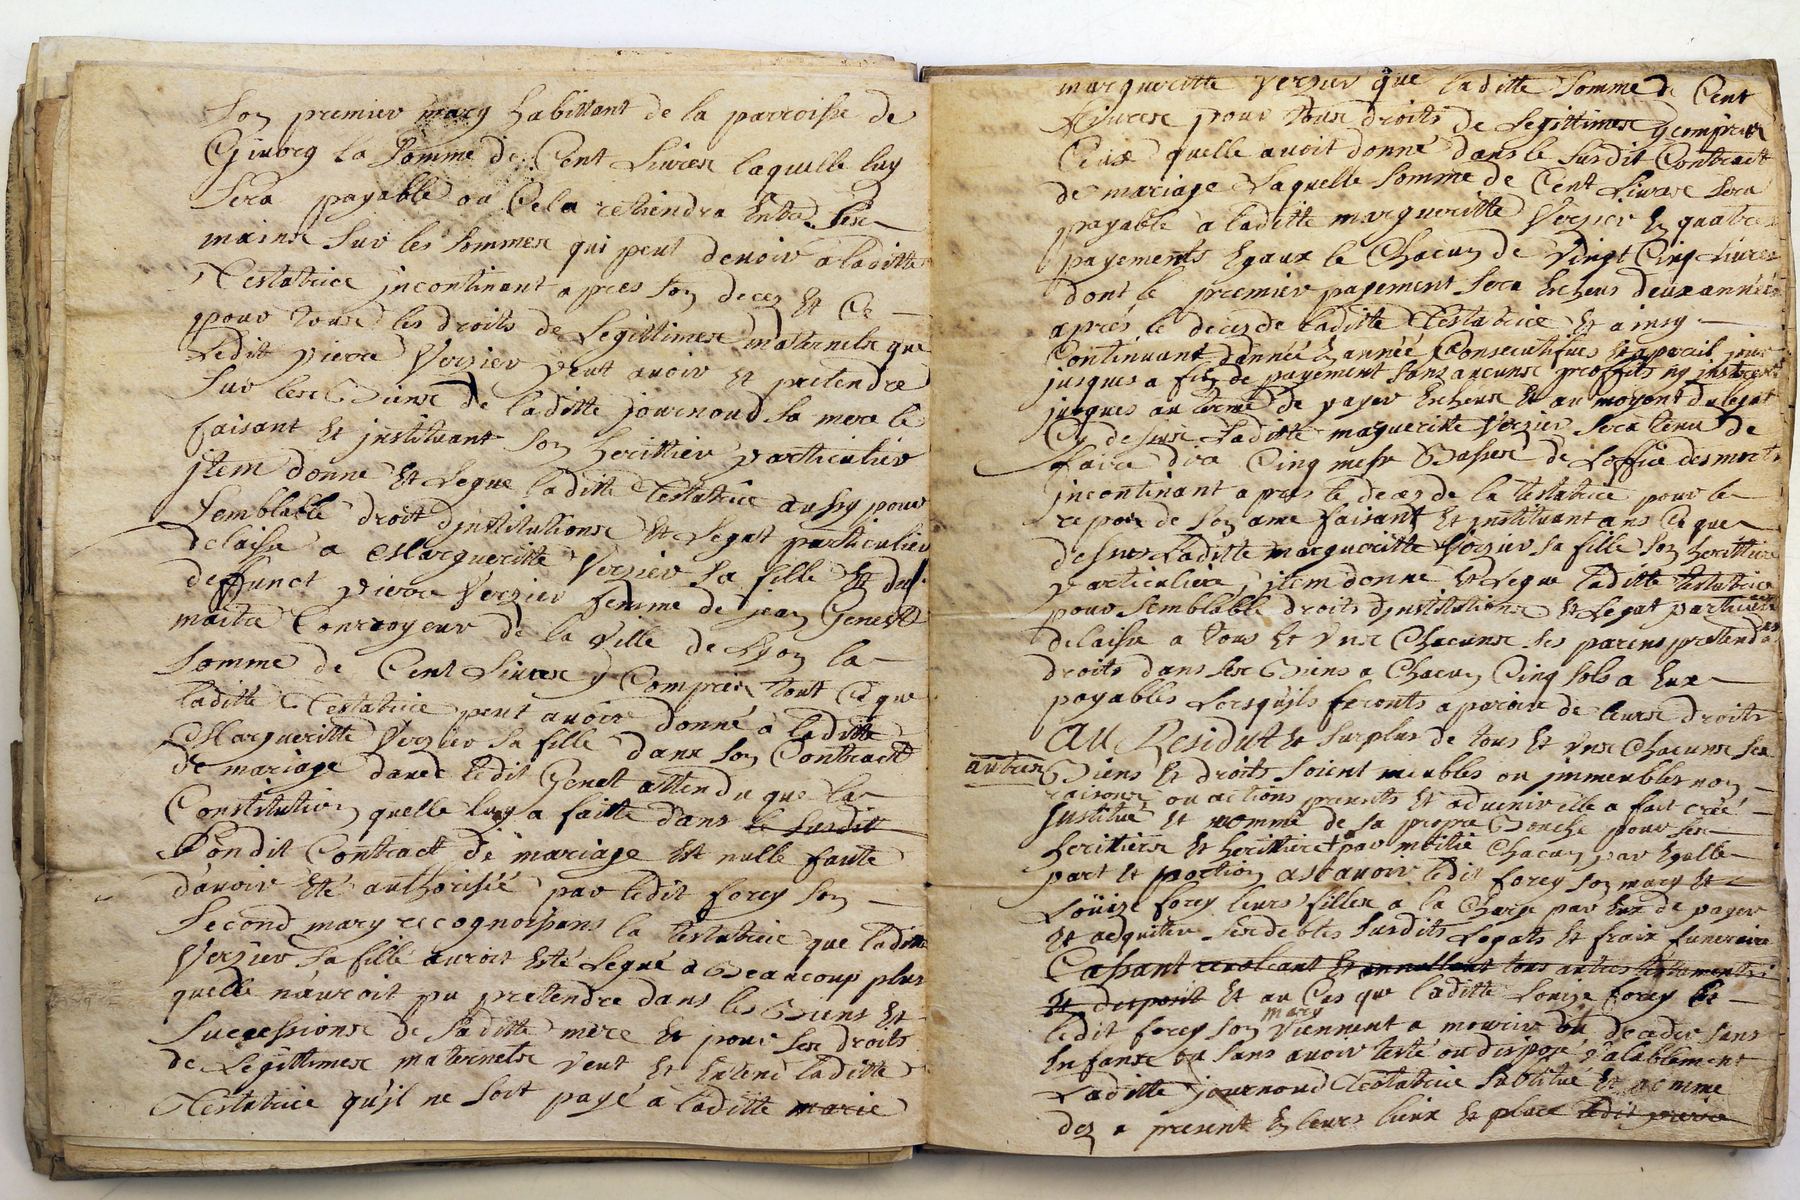 son premier mary habittant de la parroisse de
Givorg la somme de Cent Livres laquelle luy
sera payable ou Cela retiendra Entre ses
mains sur les sommes qui peut devoir a laditte
Testatrice jncontinant apres son deces Et Ce
pour tous les droits de Legittimes maternels que
Ledit pierre Verzier peut avoir Et pretendre
sur les Biens de laditte journoud sa mere le
faisant Et jnstituant son herittier particulier
jtem donne Et Legue laditte Testatrice aussy pour
semblable droit djnstitutions Et Legat particulier
delaisse a Margueritte Verzier sa fille Et du
deffunct pierre Verzier femme de jean Genest
maitre Courroyeur de la ville de Lyon la
somme de Cent Livres y Compris tout Ce que
laditte Testatrice peut avoir donné à laditte
Margueritte Verzier sa fille dans son Contract
de mariage davec ledit Genest attendu que la
Constitution quelle luy a faitte dans le susdit
sondit Contract de mariage Est nulle faute
davoir Eté authorisée par ledit forey son
second mary recognoissans la testatrice que laditte
Verzier sa fille auroit Esté Legué a Beaucoup plus
quelle n'auroit pu pretendre dans les Biens Et
successions de saditte mere Et pour ses droits
de Legittimes maternels veut Et Entend laditte
Testatrice qu'jl ne soit payé a laditte marie
margueritte Verzier que laditte somme de Cent
Livres pour tous droits de Legittimes y compris
Ceux quelle avoit donné dans le susdit Contract
de mariage Laquelle somme de Cent Livres sera
payable a laditte margueritte Verzier En quatre
payements Egaux le Chacun de vingt Cinq Livres
dont le premier payement sera Echeus deux années
aprés le deces de laditte Testatrice Et ainsy
Continuant dannée En année Consecutifves Et a pareil jour
jusques a fin de payement sans aucuns proffits ny jnterests
jusques au terme de payer Echeus Et au moyent du legat
Cy dessus Laditte margueritte Verzier sera tenu de
faire dire Cinq messe Basses de Loffice des morts
jncontinant apres le deces de la testatrice pour le
repos de son ame faisant Et jnstituant ans Ce que
dessus Laditte margueritte Verzier sa fille son herittiere
particuliere, jtem donne Et Legue laditte testatrice
pour semblable droits djnstitutions Et Legat particulier
delaisse a tous Et uns Chacuns ses parens pretendans
droits dans ses Biens a Chacun Cinq sols a Eux
payables Lorsquils feronts aparoir de leurs droits
AU Residut Et surplus de tous Et uns Chacuns ses
autres Biens Et droits soient meubles ou jmmeubles nom
raisons ou actions presents Et advenir elle a fait créé
jnstitué Et nommé de sa propre Bouche pour ses
herittiers Et herittiere par moitié Chacun par Egalle
part Et portion asçavoir ledit forey son mary Et
Loüize forey leurs filles a la Charge par Eux de payer
Et acquiter ses debtes susdits Legats Et fraix funeraire
Cassant revoicant Et annullant tous autres testaments
Et Et au Cas que laditte Louize forey Et
mary
ledit forey son viennent a mourir ou deceder sans
Enfans ou sans avoir testé ou disposé valablement
Laditte journoud Testatrice substitué Et nomme
des a present En leurs lieux Et place ledit pierre